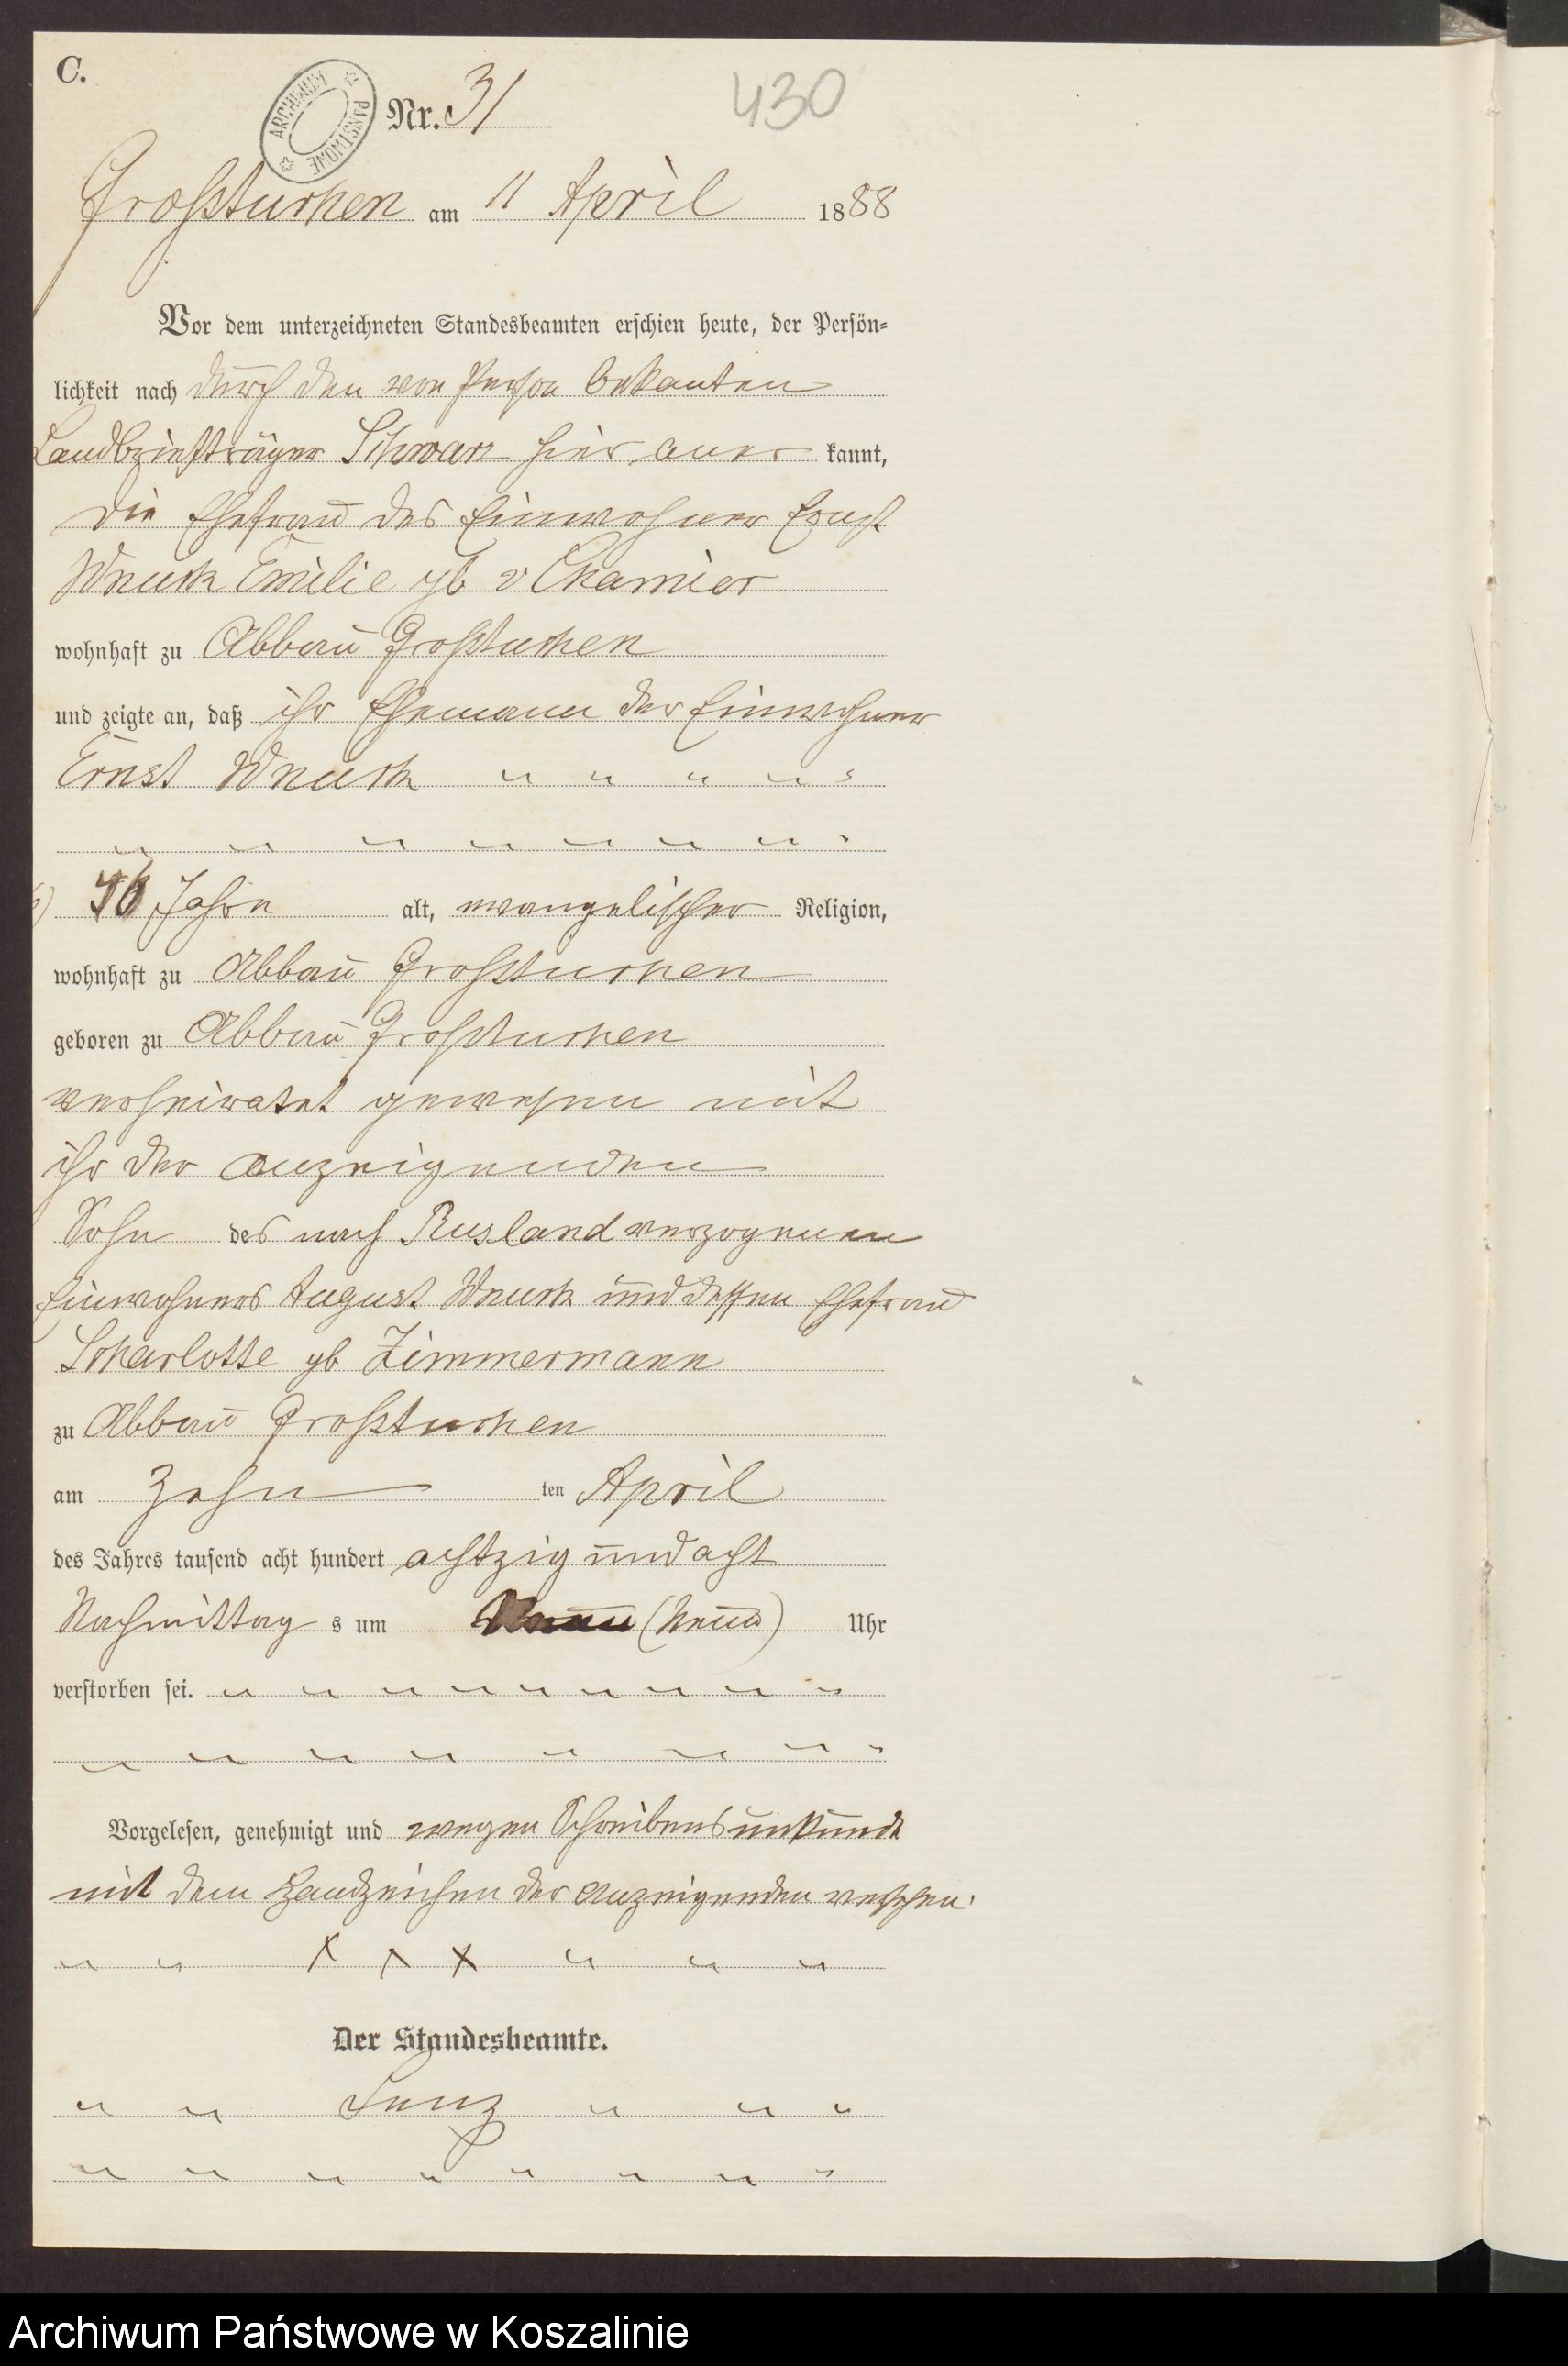 C.
ARCHIWUM PAŃSTWOWE
Nr. 31
430
Großtuchen am 11 April 1888
Vor dem unterzeichneten Standesbeamten erschien heute, der Persön=
lichkeit nach durch den von Person bekanten
Landbriefträger Schwarz hier aner kannt,
die Ehefrau des Einwohner Ernst
Wnuck Emilie gb v Chamier
wohnhaft zu Abbau Großtuchen
und zeigte an, daß ihr Ehemann der Einwohner
Ernst Wnuck
46 Jahre alt, evangelischer Religion,
wohnhaft zu Abbau Großtuchen
geboren zu Abbau Großtuchen
verheiratet gewesen mit
ihr der anzeigenden
Sohn des nach Rusland verzogenen
Einwohners August Wnuck und dessen Ehefrau
Scharlotte gb Zimmermann
zu Abbau Großtuchen
am Zehn ten April
des Jahres tausend acht hundert achtzig und acht
Nachmittag s um (Neun) Uhr
verstorben sei.
Vorgelesen, genehmigt und wegen Schreibensunkunde
mit dem Handzeichen der Anzeigenden versehen.
x x x
Der Standesbeamte.
Lenz
Archiwum Państwowe w Koszalinie